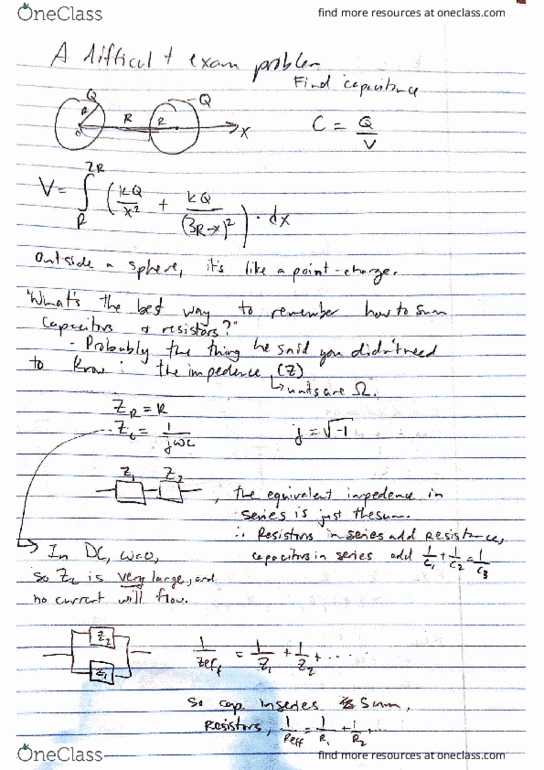 OneClass
find more resources at oneclass.com
A difficult exam problem
Find capacitance
Q
-Q
R
R
R
x
C = Q/V
V = ∫_R^2R (kQ/x² + kQ/(3R-x)²) · dx
Outside a sphere, it's like a point-charge.
"What's the best way to remember how to sum
Capacitors & resistors?"
- Probably the thing he said you didn't need
to know: the impedence (Z)
↳ units are Ω.
Z_R = R
Z_C = 1/jωC
j = √-1
Z₁ Z₂
, the equivalent impedence in
series is just the sum.
∴ Resistors in series add Resistance,
capacitors in series add 1/C₁ + 1/C₂ = 1/C₃
→ In DC, ω=0,
so Z_C is very large, and
no current will flow.
Z₂
Z₁
1/Zeff = 1/Z₁ + 1/Z₂ + ....
So cap. in series Sum,
Resistors, 1/Reff = 1/R₁ + 1/R₂ ...
OneClass
find more resources at oneclass.com